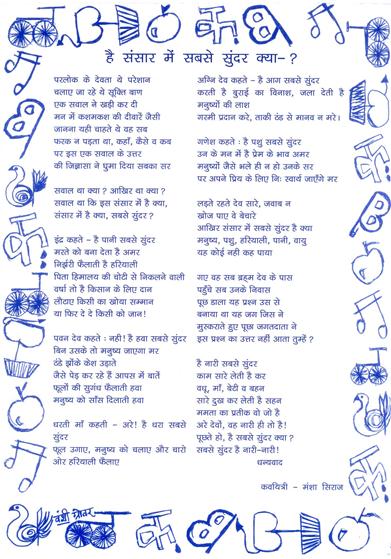 है संसार में सबसे सुंदर क्या-?
परलोक के देवता थे परेशान
चलाए जा रहे थे सूक्ति बाण
एक सवाल ने खड़ी कर दी
मन में कशमकश की दीवारें जैसी
जानना यही चाहते थे वह सब
फरक न पड़ता था, कहाँ, कैसे व कब
पर इस एक सवाल के उत्तर
की जिज्ञासा ने घुमा दिया सबका सर
सवाल था क्या ? आखिर था क्या ?
सवाल था कि इस संसार में है क्या,
संसार में है क्या, सबसे सुंदर ?
इंद्र कहते - है पानी सबसे सुंदर
मरते को बना देता है अमर
निर्झरी फैलाती है हरियाली
पिता हिमालय की चोटी से निकलने वाली
वर्षा तो है किसान के लिए दान
लौटाए किसी का खोया सम्मान
या फिर दे दे किसी को जान!
पवन देव कहते : नही! है हवा सबसे सुंदर
बिन उसके तो मनुष्य जाएगा मर
ठंडे झौंके केश उड़ाते
जैसे पेड़ कर रहे हैं आपस में बातें
फूलों की सुगंध फैलाती हवा
मनुष्य को साँस दिलाती हवा
धरती माँ कहती - अरे! है धरा सबसे
सुंदर
फूल उगाए, मनुष्य को चलाए और चारो
ओर हरियाली फैलाए
अग्नि देव कहते - है आग सबसे सुंदर
करती है बुराई का विनाश, जला देती है
मनुष्यों की लाश
गरमी प्रदान करे, ताकी ठंढ से मानव न मरे।
गणेश कहते : है पशु सबसे सुंदर
उन के मन में है प्रेम के भाव अमर
मनुष्यों जैसे भले ही न हो उनके सर
पर अपने प्रिय के लिए निः स्वार्थ जाएँगे मर
लड़ते रहते देव सारे, जवाब न
खोज पाए वे बेचारे
आखिर संसार में सबसे सुंदर है क्या
मनुष्य, पशु, हरियाली, पानी, वायु
यह कोई नही कह पाया
गए वह सब ब्रह्म देव के पास
पहुँचे सब उनके निवास
पूछ डाला यह प्रश्न उस से
बनाया था यह जग जिस ने
मुस्कराते हुए पूछा जगतदाता ने
इस प्रश्न का उत्तर नहीं आता तुम्हें ?
है नारी सबसे सुंदर
काम सारे लेती है कर
वधू, माँ, बेटी व बहन
सारे दुख कर लेती है सहन
ममता का प्रतीक वो जो है
अरे देवों, वह नारी ही तो है!
पूछते हो, है सबसे सुंदर क्या ?
सबसे सुंदर है नारी-नारी!
धन्यवाद
कवयित्री - मंशा सिराज